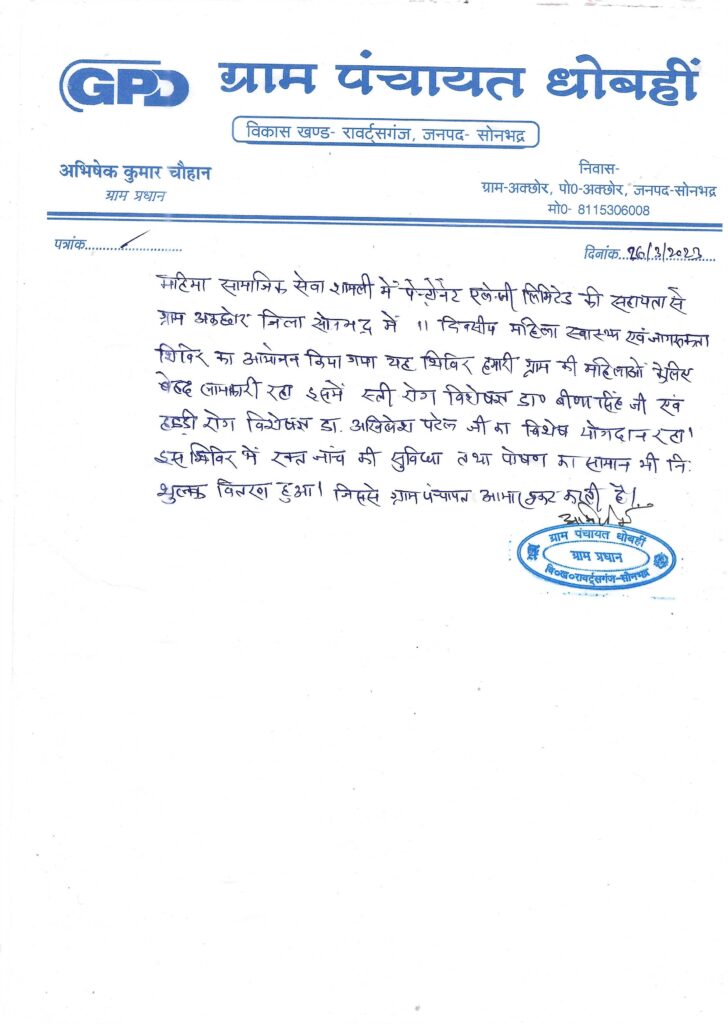 GPD ग्राम पंचायत धोबहीं
विकास खण्ड- रावर्ट्सगंज, जनपद- सोनभद्र
अभिषेक कुमार चौहान
ग्राम प्रधान
निवास-
ग्राम-अक्छोर, पो0-अक्छोर, जनपद-सोनभद्र
मो0- 8115306008
पत्रांक..............................
दिनांक..26/3/2023
महिमा सामाजिक सेवा शामली में एनर्जी लिमिटेड की सहायता से
ग्राम अकछोर जिला सोनभद्र में 11 दिवसीय महिला स्वास्थ्य एवं जागरूकता
शिविर का आयोजन किया गया यह शिविर हमारी ग्राम की महिलाओं के लिए
बेहद लाभकारी रहा इसमें स्त्री रोग विशेषज्ञ डा० बीणा सिंह जी एवं
हड्डी रोग विशेषज्ञ डा. अखिलेश पटेल जी का विशेष योगदान रहा।
इस शिविर में रक्त जांच की सुविधा तथा पोषण का सामान भी नि:
शुल्क वितरण हुआ। जिससे ग्राम पंचायत आभार प्रकट करती है।
ग्राम पंचायत धोबहीं
ग्राम प्रधान
वि०ख०रावर्ट्सगंज-सोनभद्र